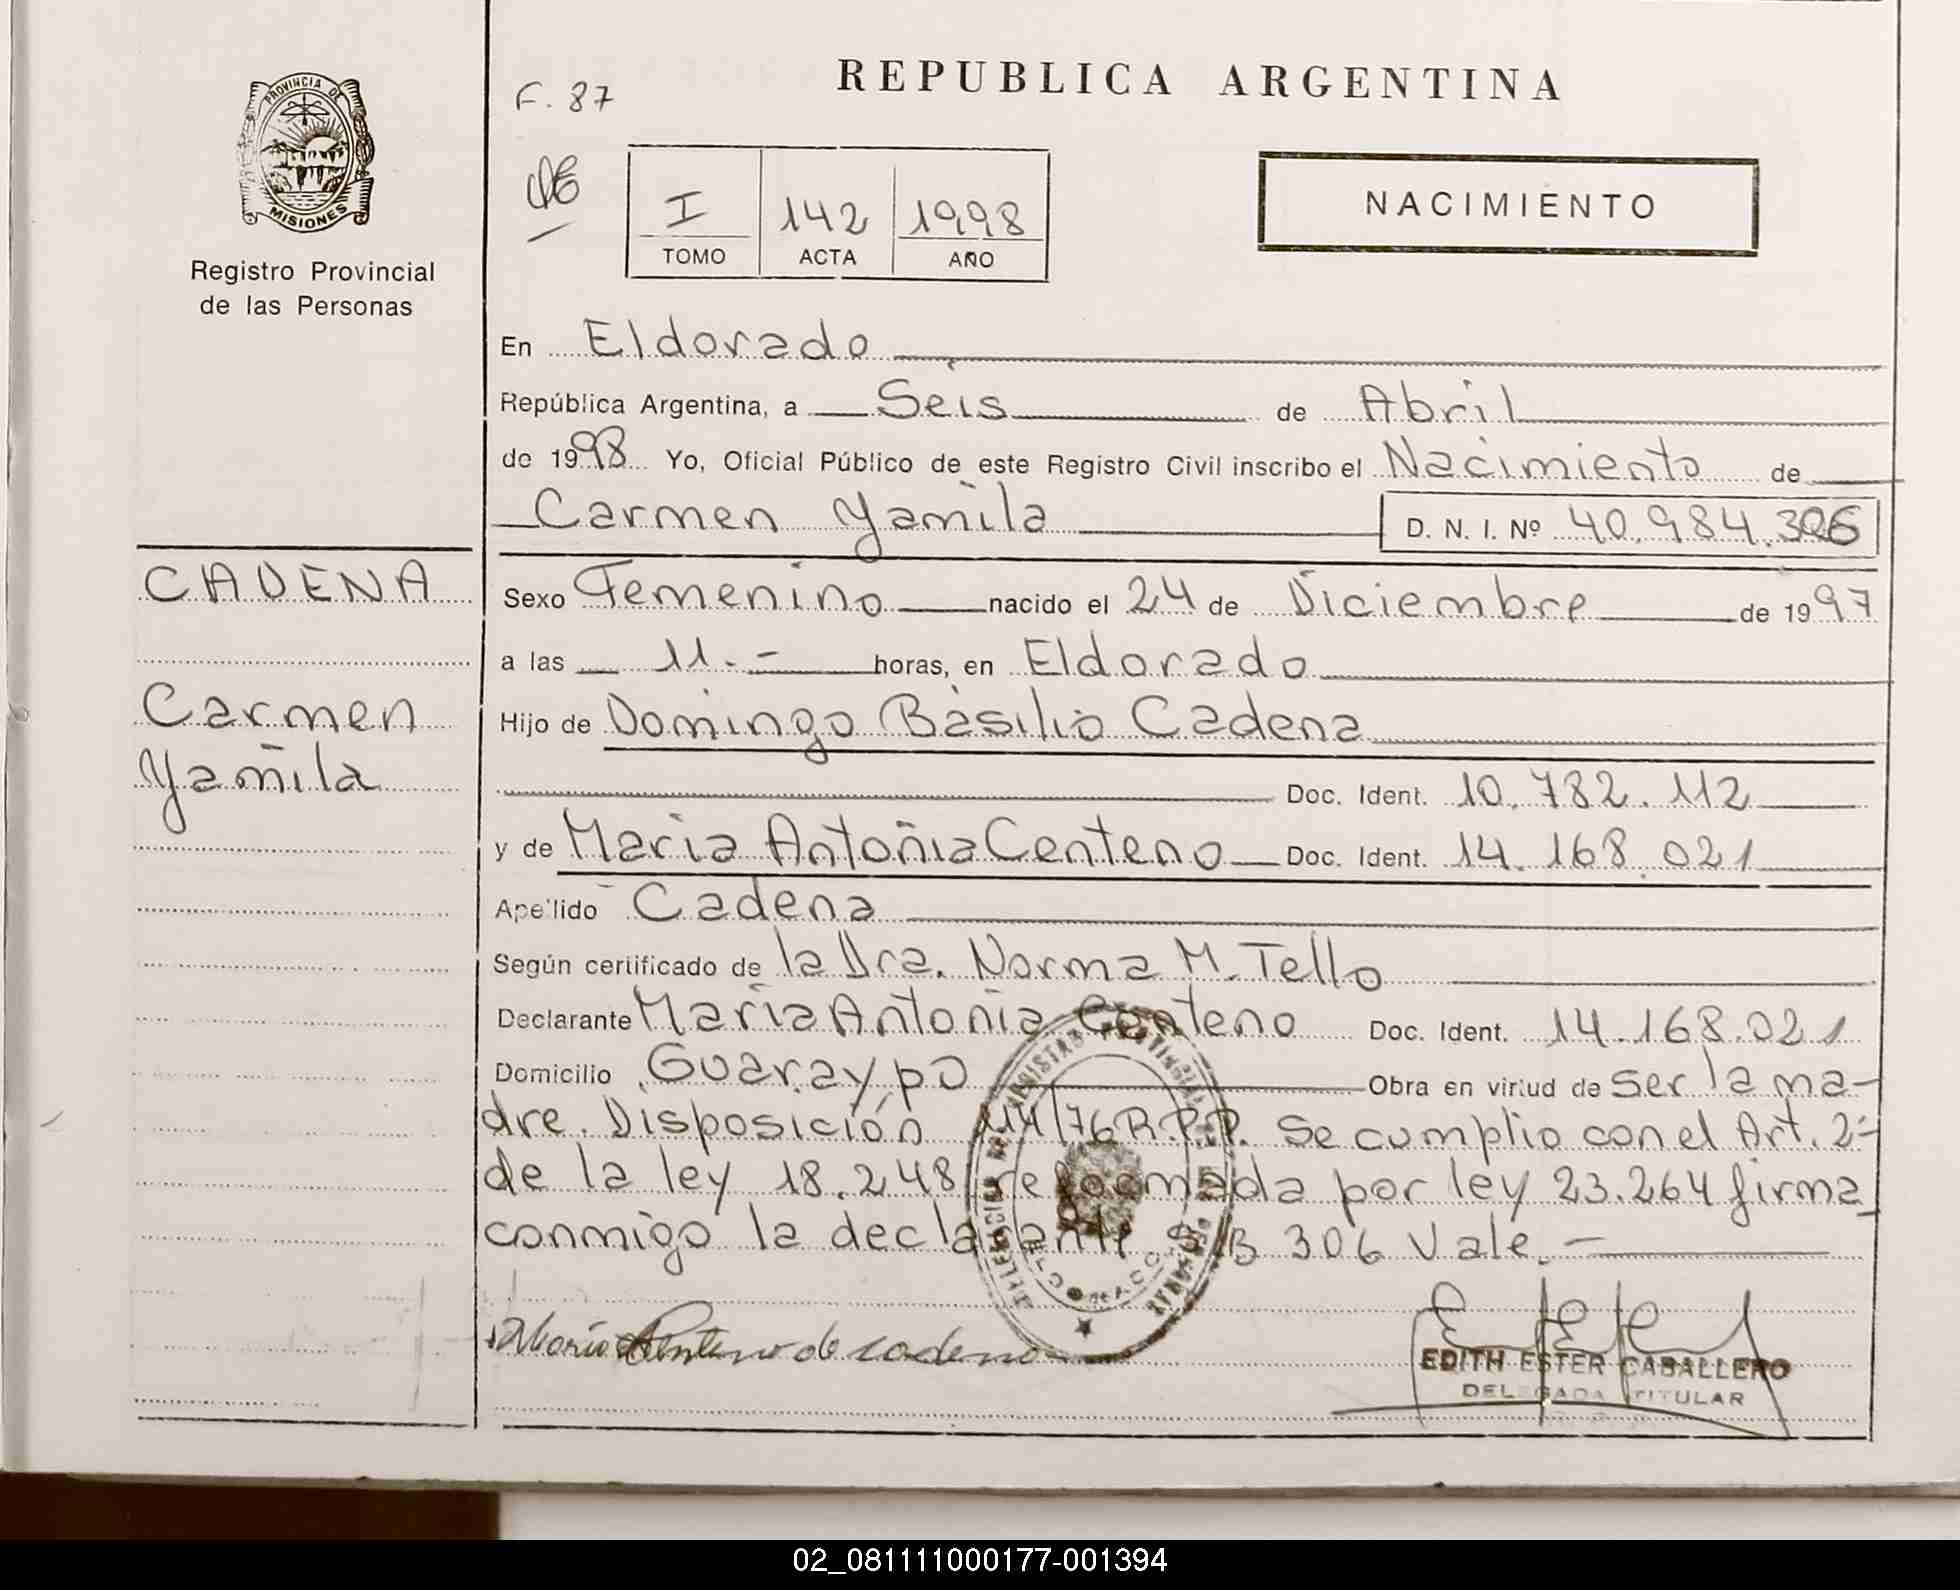 PROVINCIA DE
MISIONES
Registro Provincial
de las Personas
F. 87
REPUBLICA ARGENTINA
I 142 1998
TOMO ACTA AÑO
NACIMIENTO
En Eldorado
República Argentina, a Seis de Abril
de 1998 Yo, Oficial Público de este Registro Civil inscribo el Nacimiento de
Carmen Yamila D. N. I. Nº 40.984.306
CADENA
Carmen
Yamila
Sexo Femenino nacido el 24 de Diciembre de 1997
a las 11.- horas, en Eldorado
Hijo de Domingo Basilio Cadena
Doc. Ident. 10.782.112
y de Maria Antonia Centeno Doc. Ident. 14.168.021
Apellido Cadena
Según certificado de la Dra. Norma M. Tello
Declarante Maria Antonia Centeno Doc. Ident. 14.168.021
Domicilio Guaraypo Obra en virtud de ser la ma-
dre. Disposición 114/76 R.P.P. Se cumplio con el Art. 2º
de la ley 18.248 reformada por ley 23.264 firma
conmigo la declarante S/B 306 Vale.-
Maria Centeno de cadena
EDITH ESTER CABALLERO
DELEGADA TITULAR
02_081111000177-001394